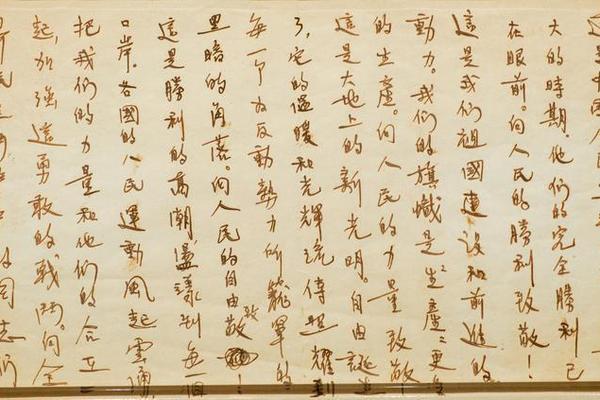 大的時期。他们的完全勝利已
在眼前。向人民的勝利致敬！
這是我们祖國建设和前進的
動力。我们的旗幟是“生產”“更多
的生產。向人民的力量致敬！
這是大地上的新光明。自由誕生
了，它的温暖和光輝流傳照耀到
每一个为反動势力所籠罩的
黑暗的角落。向人民的自由致敬！
這是勝利的高潮，盪漾到每一個
口岸。各國的人民運動風起雲湧，
把我们的力量和他们的合在一
起，加強這勇敢的戰鬥。向全
同志们